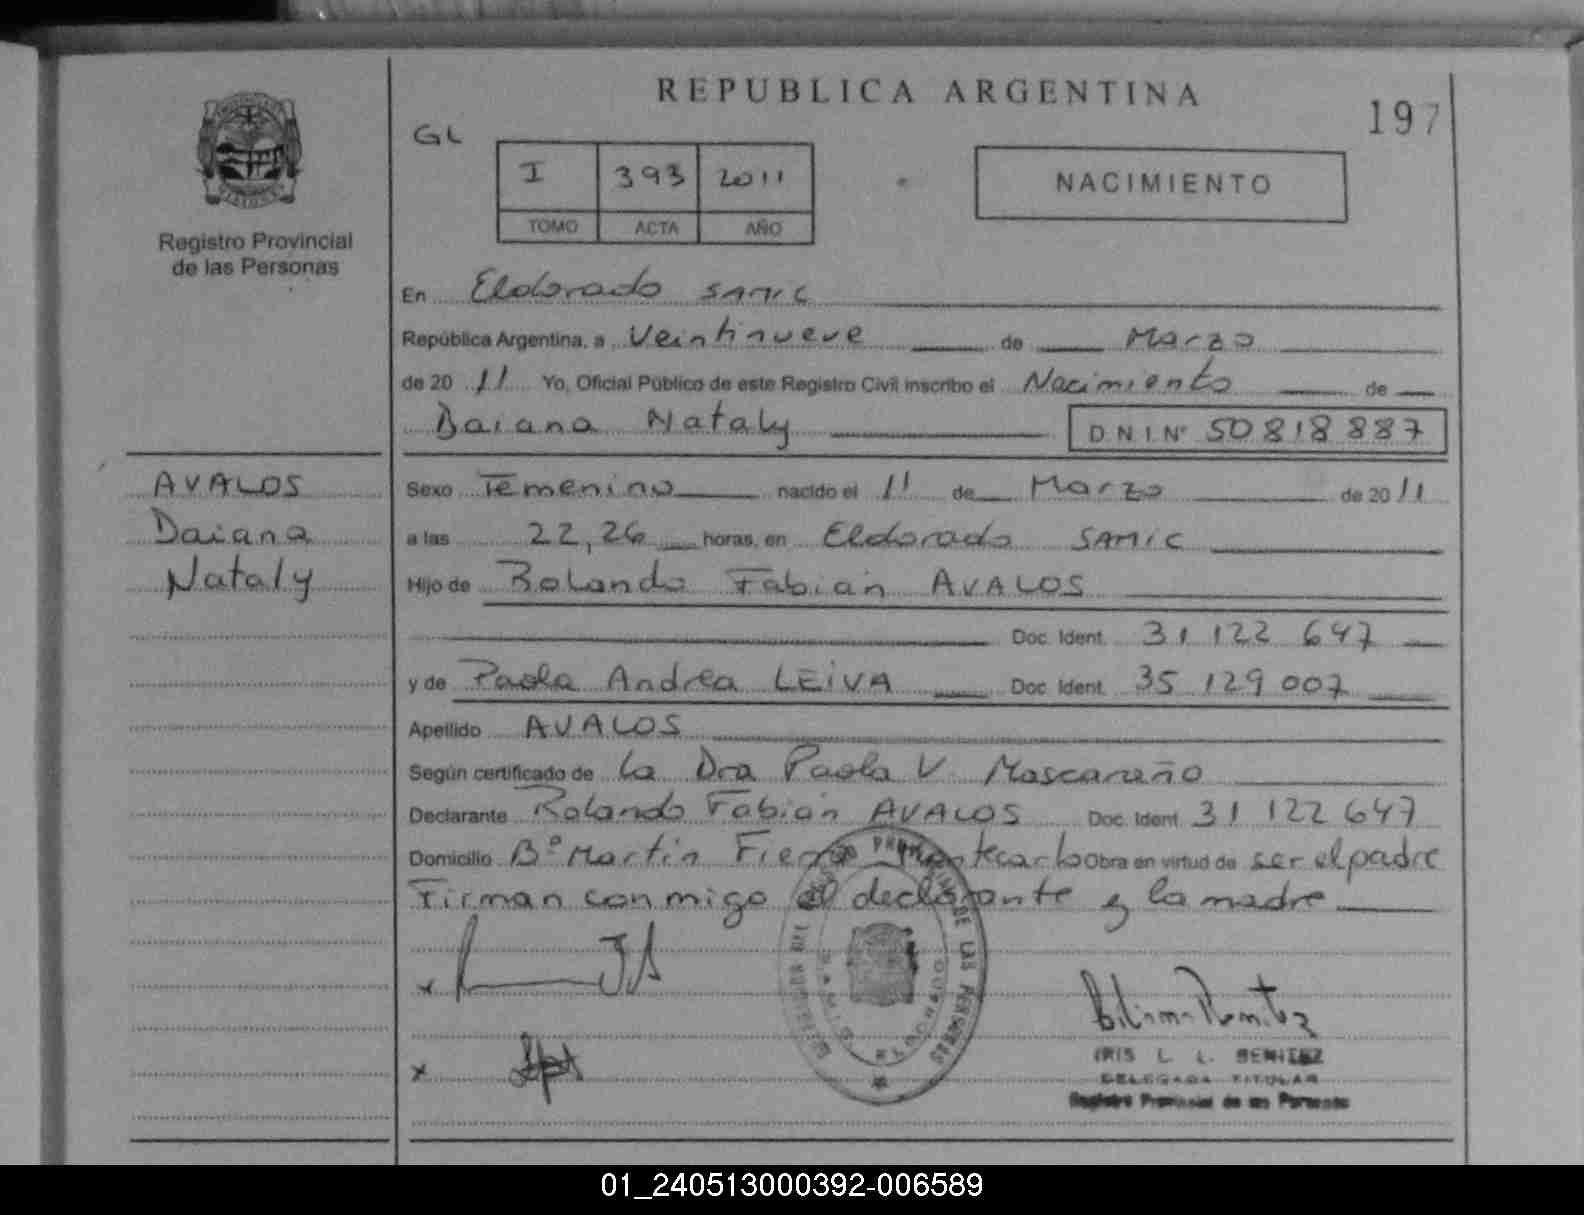 REPUBLICA ARGENTINA
197
GL
I 393 2011
TOMO ACTA AÑO
NACIMIENTO
Registro Provincial
de las Personas
En Eldorado SAMIC
República Argentina, a Veintinueve de Marzo
de 2011 Yo, Oficial Público de este Registro Civil inscribo el Nacimiento de
Daiana Nataly D.N.I.Nº 50818887
AVALOS
Daiana
Nataly
Sexo Femenino nacido el 11 de Marzo de 2011
a las 22,26 horas, en Eldorado SAMIC
Hijo de Rolando Fabián AVALOS
Doc. Ident. 31 122 647
y de Paola Andrea LEIVA Doc. Ident. 35 129 007
Apellido AVALOS
Según certificado de la Dra Paola V. Mascareño
Declarante Rolando Fabián AVALOS Doc. Ident. 31 122 647
Domicilio Bº Martín Fierro Montecarlo obra en virtud de ser el padre
Firman conmigo el declarante y la madre
IRIS L. L. BENITEZ
DELEGADA TITULAR
Registro Provincial de las Personas
01_240513000392-006589